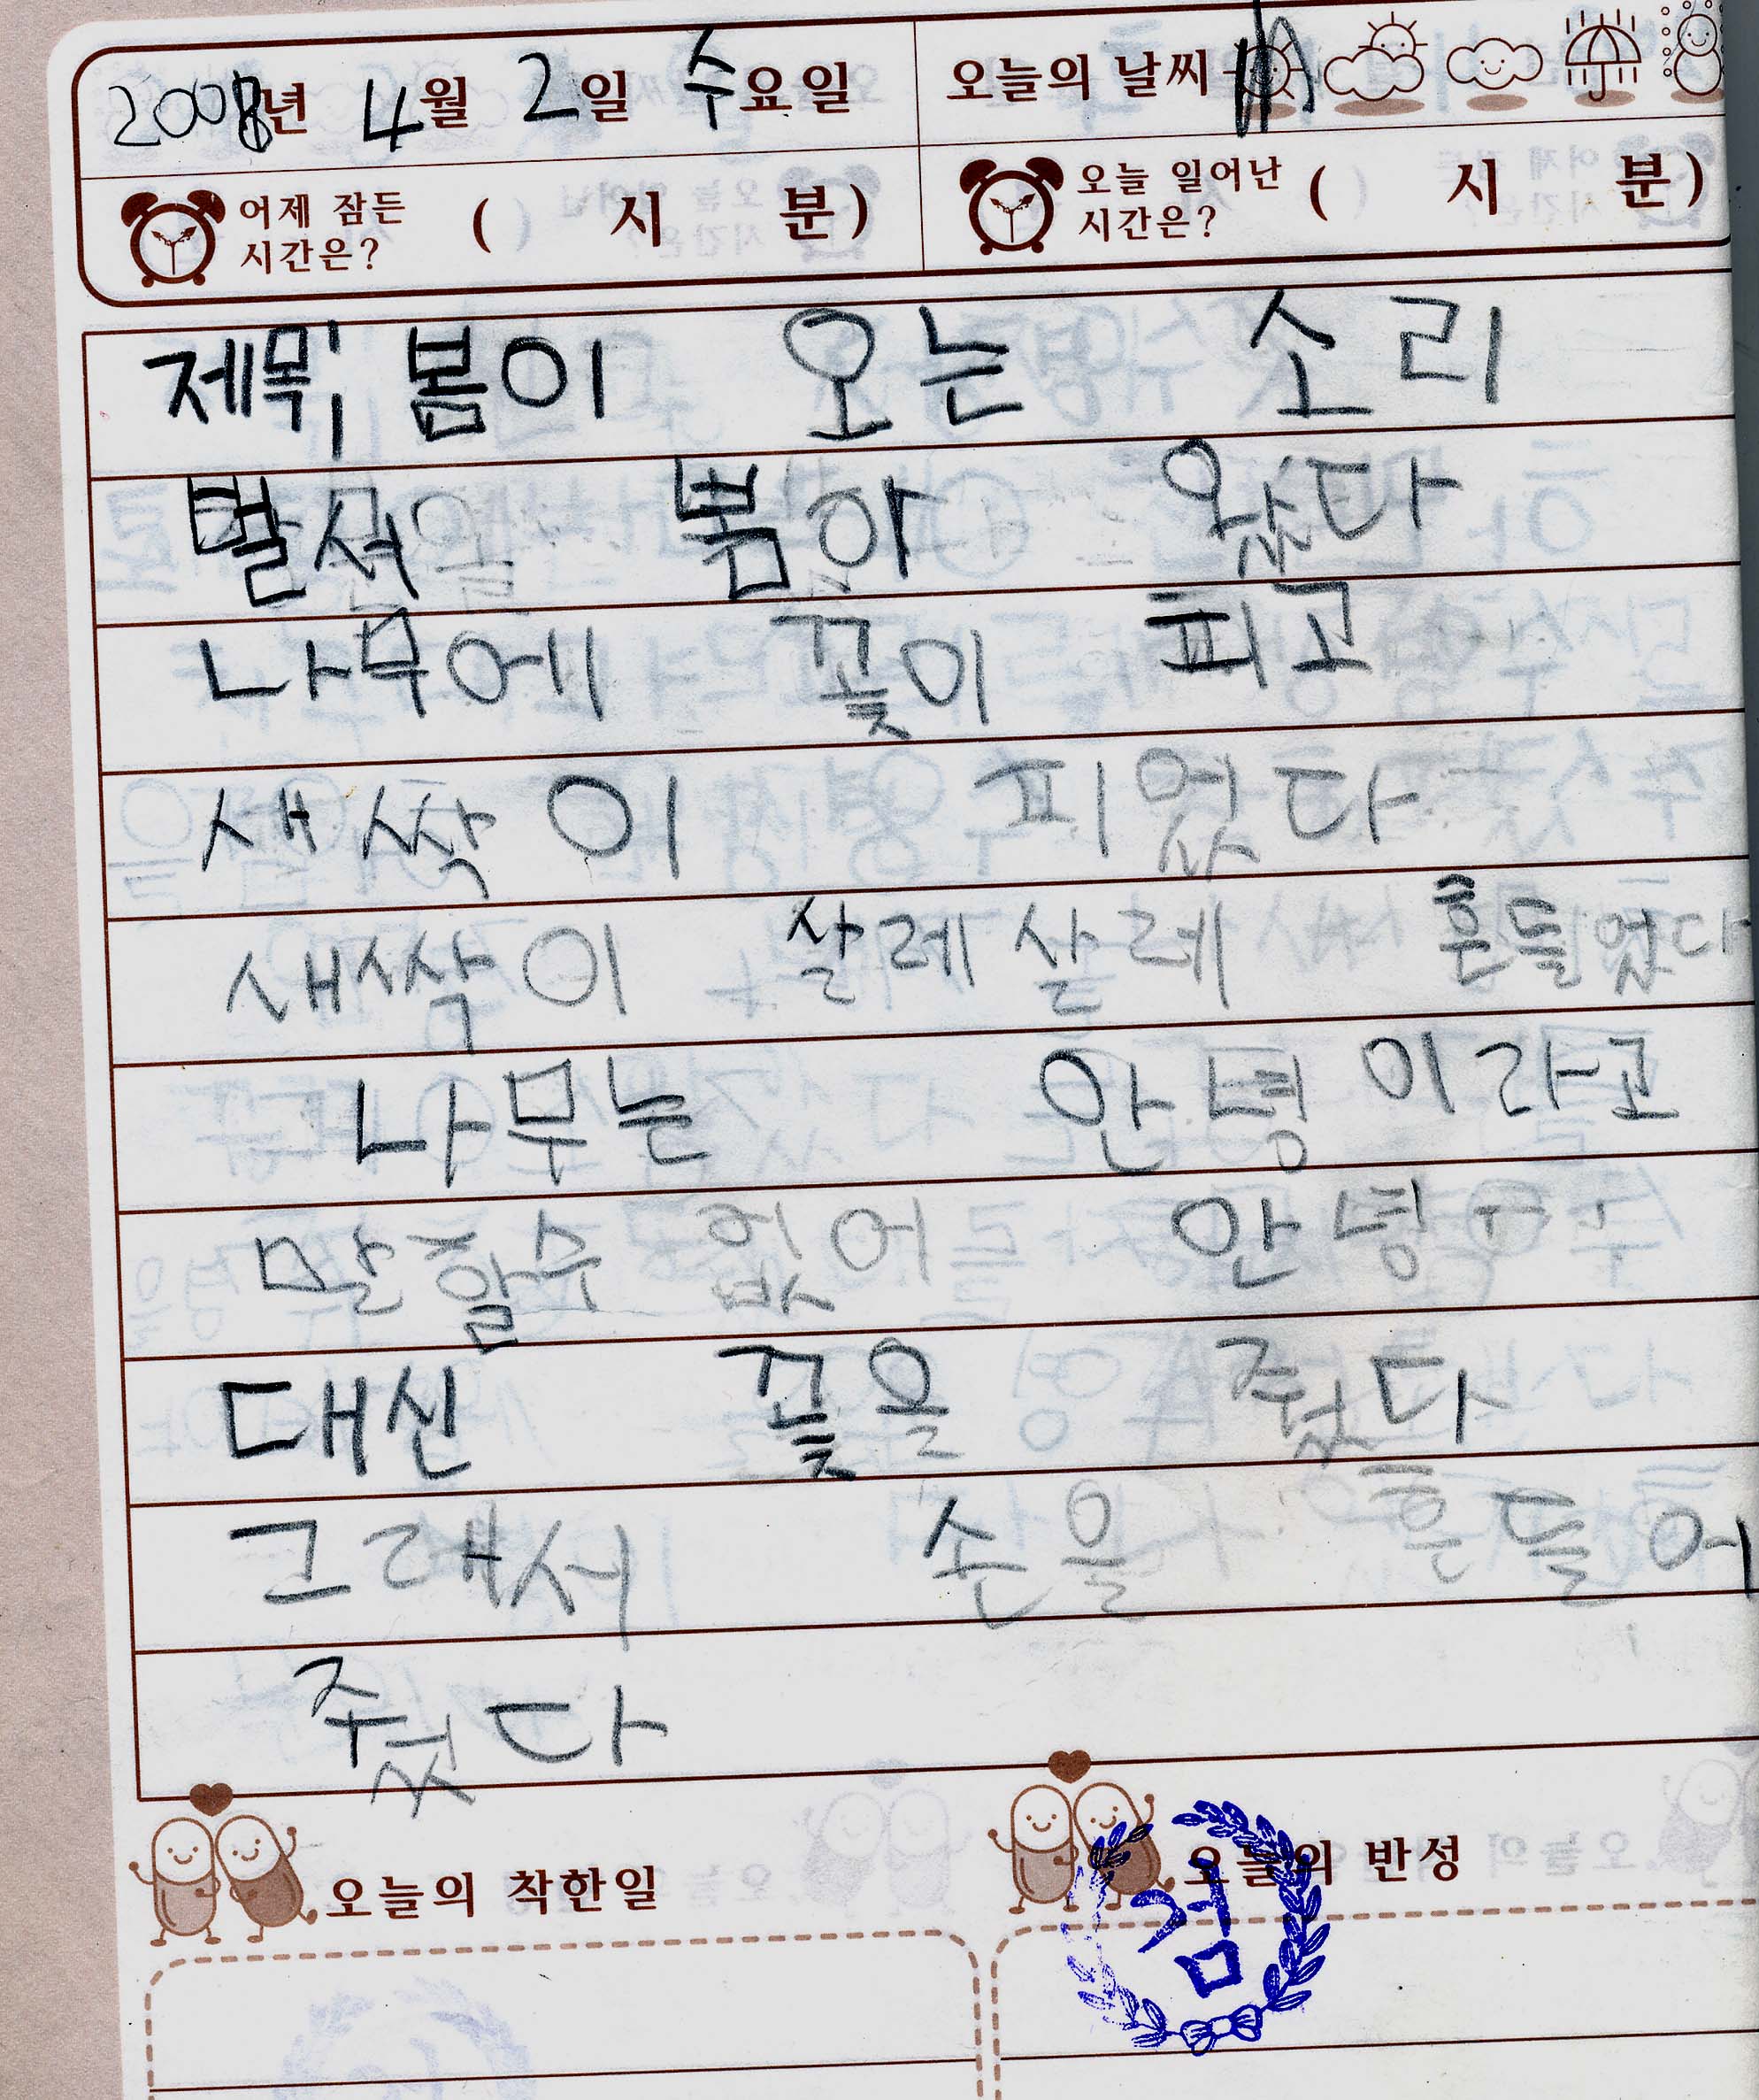 2008년 4월 2일 수요일 오늘의 날씨
어제 잠든 시간은? ( 시 분) 오늘 일어난 시간은? ( 시 분)
제목: 봄이 오는 소리
벌써 봄이 왔다
나무에 꽃이 피고
새싹이 피었다
새싹이 살레살레 흔들었다
나무는 안녕이라고
말할수 없어 안녕
대신 꽃을 줬다
그래서 손을 흔들어
줬다
오늘의 착한일 오늘의 반성
검